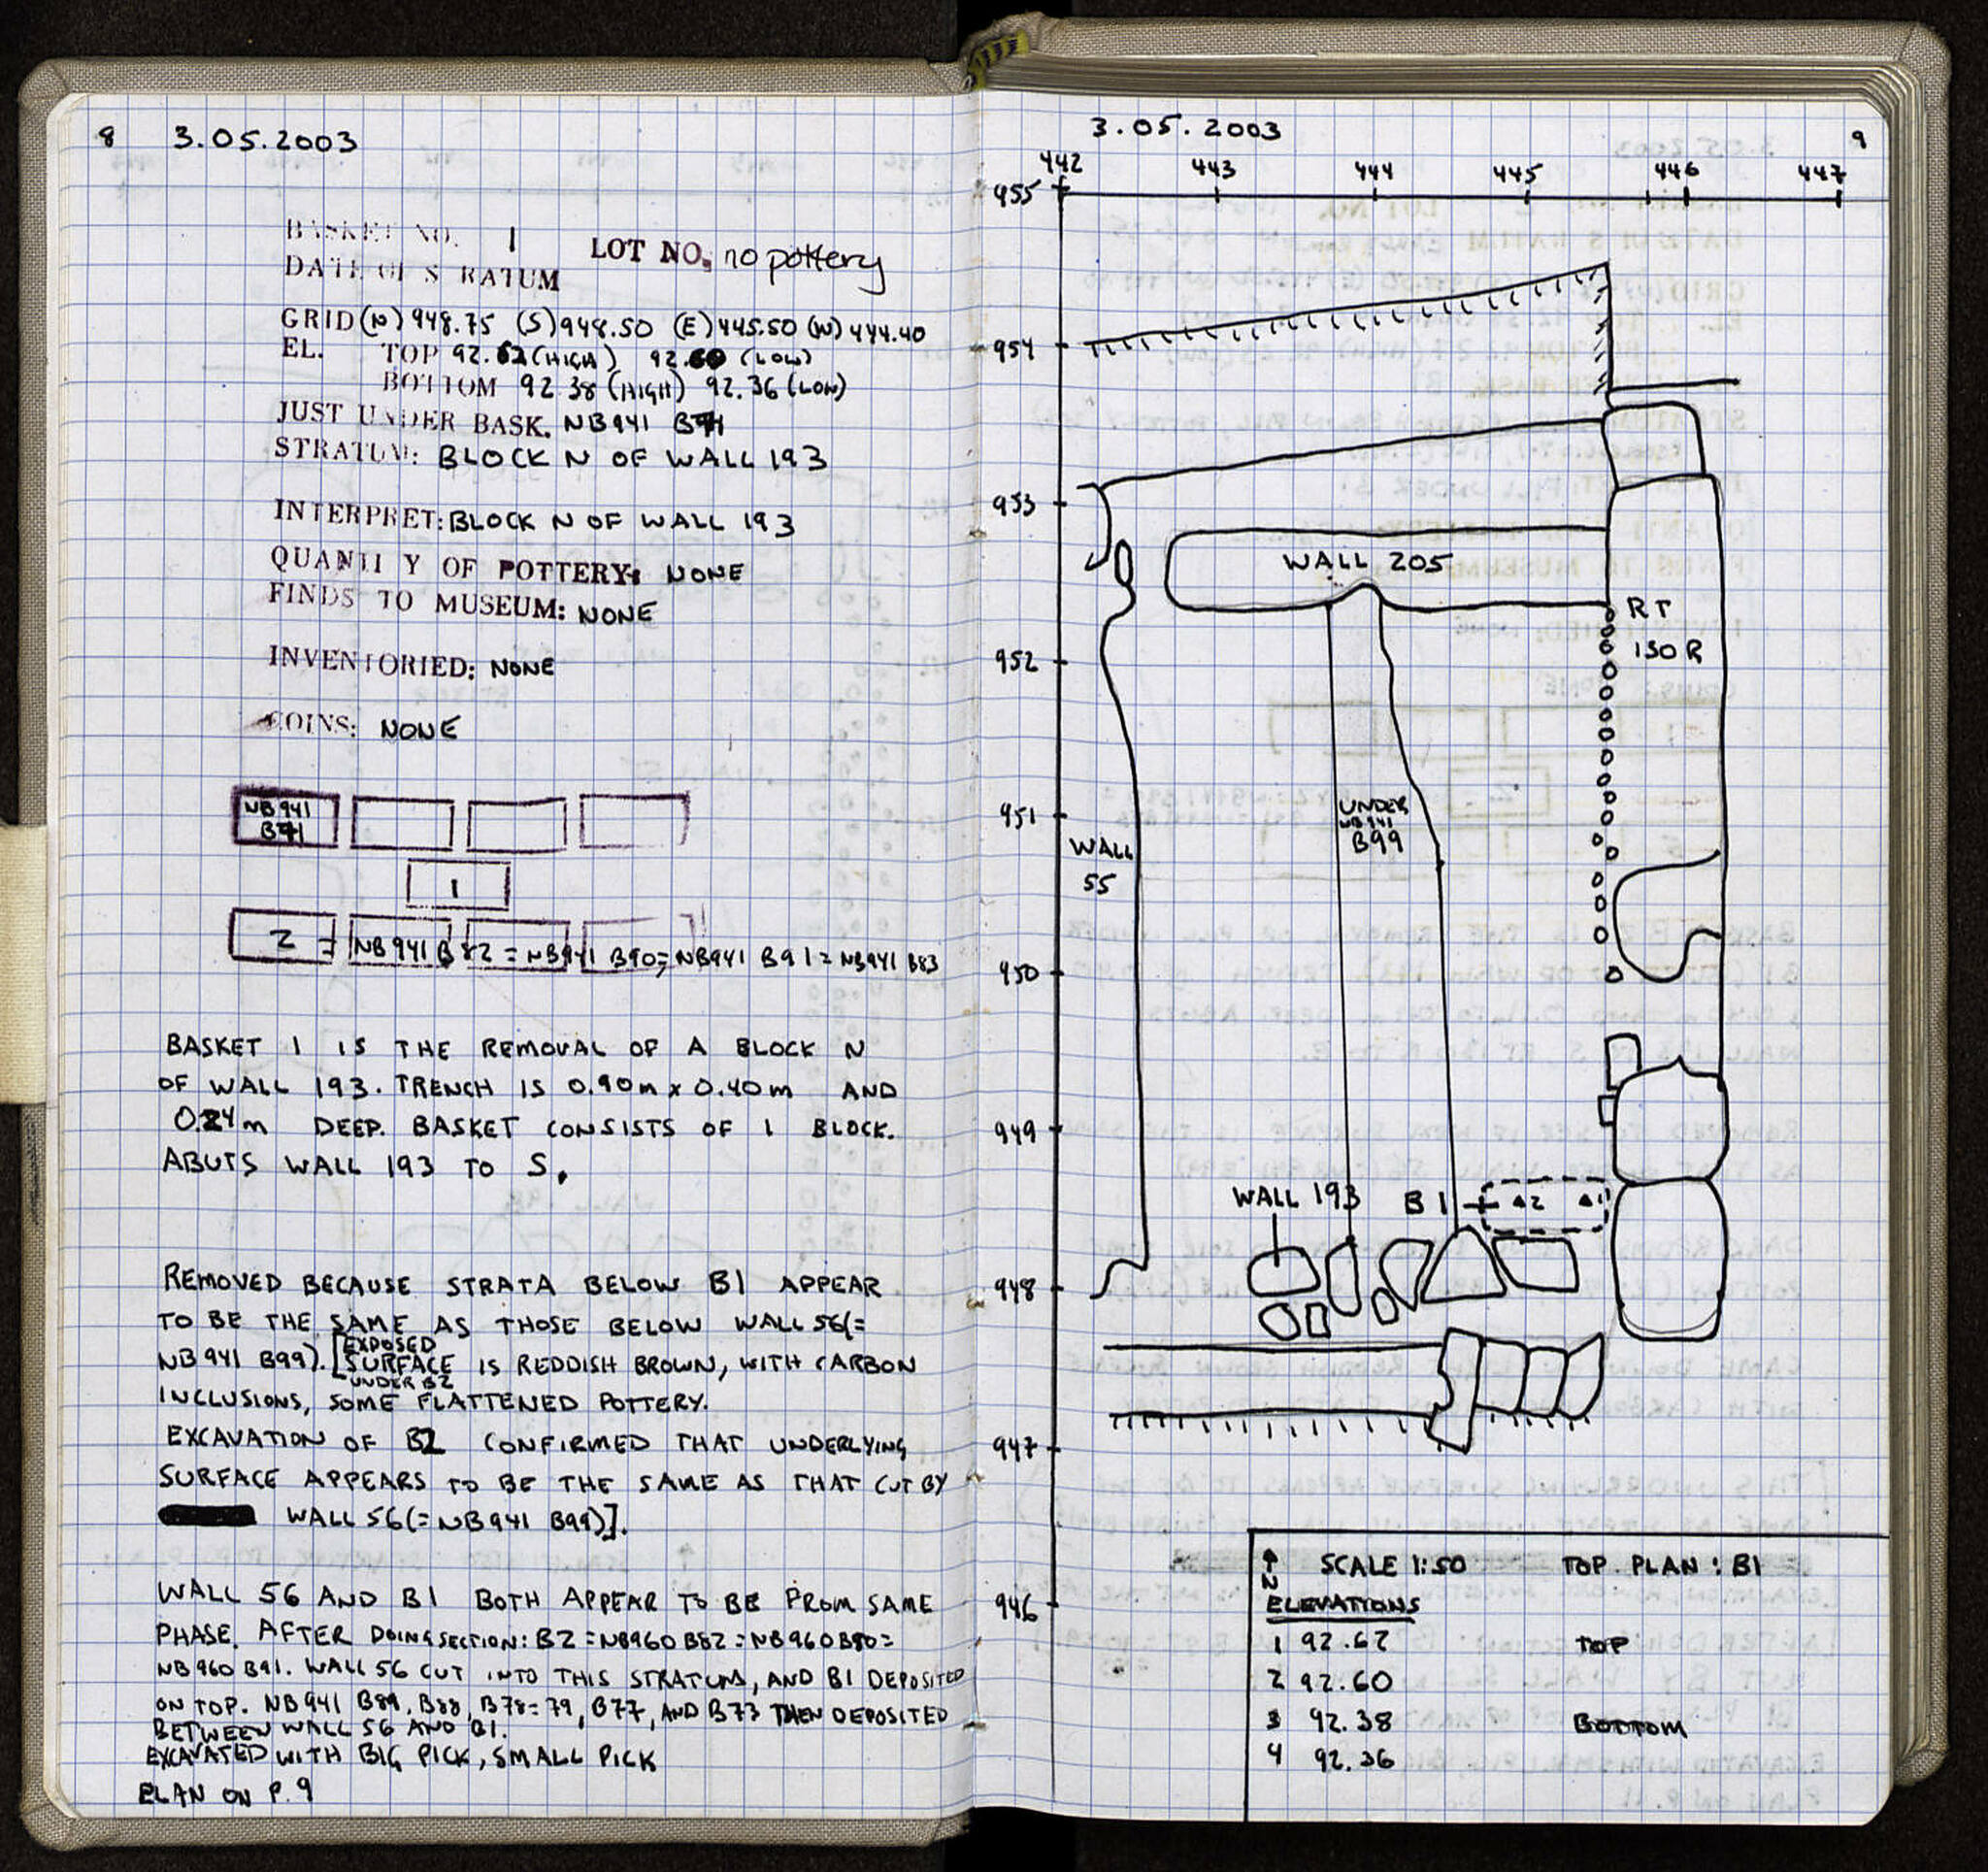 8 3.05.2003
BASKET NO. 1 LOT NO. no pottery
DATE OF S RATUM
GRID (N) 948.75 (S) 948.50 (E) 445.50 (W) 444.40
EL. TOP 92.62 (HIGH) 92.60 (LOW)
BOTTOM 92.38 (HIGH) 92.36 (LOW)
JUST UNDER BASK. NB941 B71
STRATUM: BLOCK N OF WALL 193
INTERPRET: BLOCK N OF WALL 193
QUANTI Y OF POTTERY: NONE
FINDS TO MUSEUM: NONE
INVENTORIED: NONE
COINS: NONE
NB941
B71
1
2 = NB941 B82 = NB941 B90 = NB941 B91 = NB941 B83
BASKET 1 IS THE REMOVAL OF A BLOCK N
OF WALL 193. TRENCH IS 0.90m x 0.40m AND
0.24m DEEP. BASKET CONSISTS OF 1 BLOCK.
ABUTS WALL 193 TO S.
REMOVED BECAUSE STRATA BELOW B1 APPEAR
TO BE THE SAME AS THOSE BELOW WALL 56(=
NB941 B99). [EXPOSED
SURFACE IS REDDISH BROWN, WITH CARBON
UNDER B2
INCLUSIONS, SOME FLATTENED POTTERY.
EXCAVATION OF B2 CONFIRMED THAT UNDERLYING
SURFACE APPEARS TO BE THE SAME AS THAT CUT BY
WALL 56(=NB941 B99)].
WALL 56 AND B1 BOTH APPEAR TO BE FROM SAME
PHASE. AFTER DOING SECTION: B2 = NB960 B82 = NB960 B90 =
NB960 B91. WALL 56 CUT INTO THIS STRATUM, AND B1 DEPOSITED
ON TOP. NB941 B89, B88, B78=79, B77, AND B73 THEN DEPOSITED
BETWEEN WALL 56 AND B1.
EXCAVATED WITH BIG PICK, SMALL PICK
PLAN ON P.9
3.05.2003 9
442 443 444 445 446 447
955
954
953
WALL 205
RT
952 150R
951
UNDER
NB941
B99
WALL
55
950
949
WALL 193 B1 2 1
948
947
946
N SCALE 1:50 TOP PLAN: B1
ELEVATIONS
1 92.62 TOP
2 92.60
3 92.38 BOTTOM
4 92.36